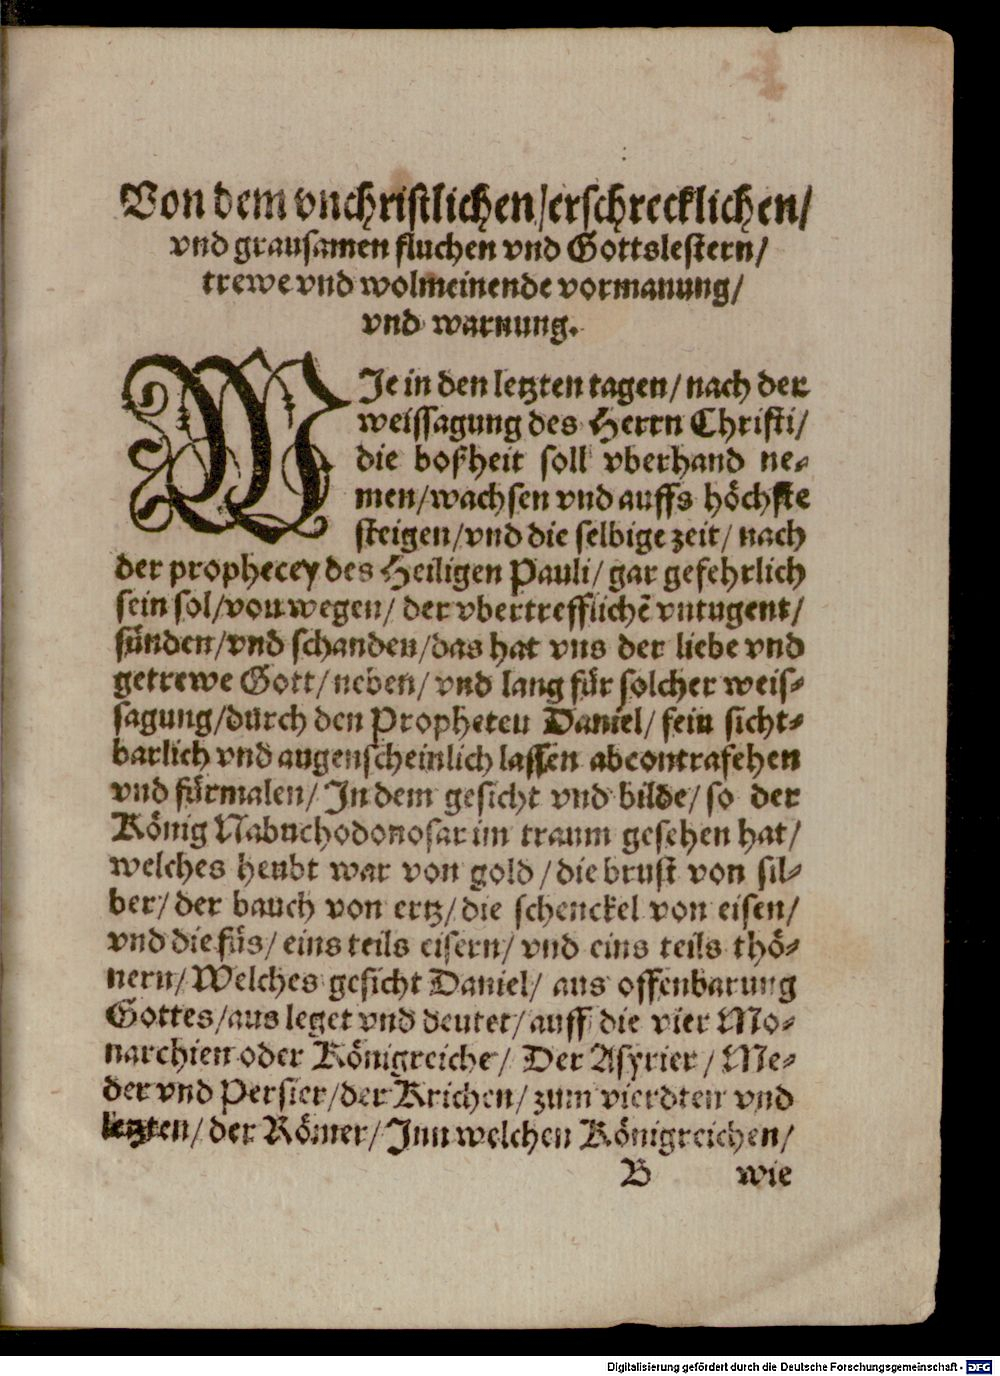 Von dem vnchristlichen/erschrecklichen/
vnd grausamen fluchen vnd Gottslestern/
trewe vnd wolmeinende vormanung/
vnd warnung.
WJe in den letzten tagen/ nach der
weissagung des Herrn Christi/
die boßheit soll vberhand ne-
men/wachsen vnd auffs höchste
steigen/vnd die selbige zeit/ nach
der prophecey des Heiligen Pauli/ gar gefehrlich
sein sol/von wegen/ der vbertrefflichẽ vntugent/
sünden/vnd schanden/das hat vns der liebe vnd
getrewe Gott/ neben/ vnd lang für solcher weis-
sagung/durch den Propheten Daniel/ fein sicht-
barlich vnd augenscheinlich lassen abcontrafehen
vnd fürmalen/ Jn dem gesicht vnd bilde/ so der
König Nabuchodonosar im traum gesehen hat/
welches heubt war von gold / die brust von sil-
ber/ der bauch von ertz/ die schenckel von eisen/
vnd die füs/ eins teils eisern/ vnd eins teils thö-
nern/ Welches gesicht Daniel/ aus offenbarung
Gottes/aus leget vnd deutet/ auff die vier Mo-
narchien oder Königreiche/ Der Asyrier / Me-
der vnd Persier/der Krichen/ zum vierdten vnd
letzten/ der Römer/ Jnn welchen Königreichen/
B wie
Digitalisierung gefördert durch die Deutsche Forschungsgemeinschaft - DFG